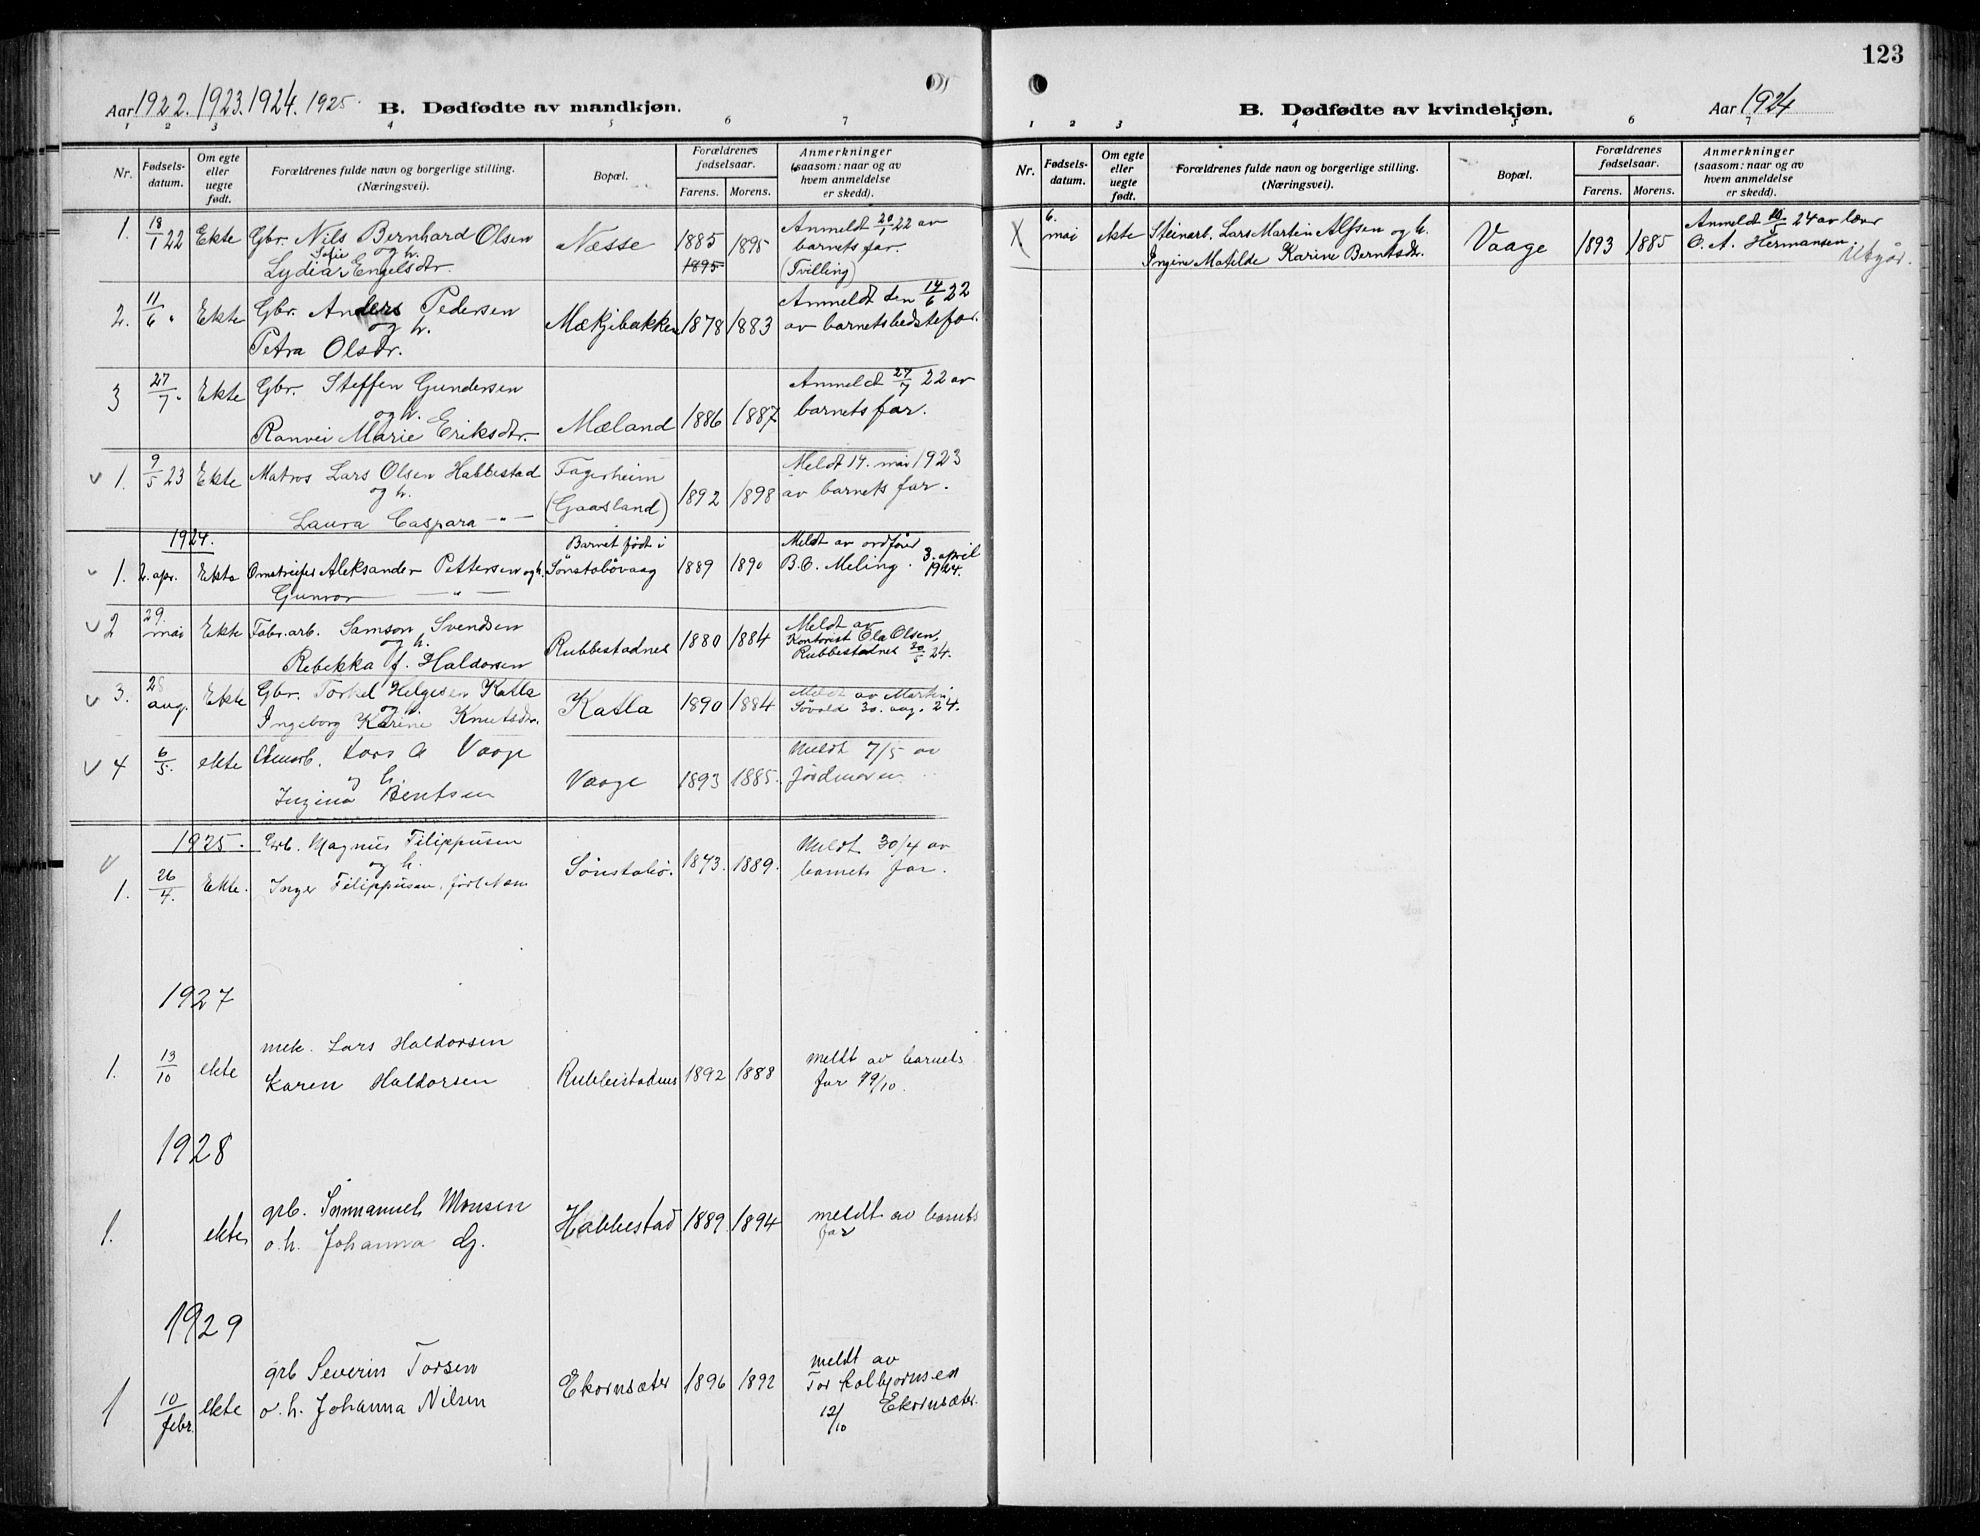 Aar 1922. 1923. 1924. 1925. B. Dødfødte av mandkjøn.
1 2 3 4 5 6 7
Nr. Fødsels-datum. Om egte eller uegte født. Forældrenes fulde navn og borgerlige stilling. (Næringsvei). Bopæl. Forældrenes fødselsaar. Farens. Morens. Anmerkninger (saasom: naar og av hvem anmeldelse er skedd).
1. 18/1 22 Ekte Gbr. Nils Bernhard Olsen Næsse 1885 1895 Anmeldt 20/1 22 av
Sofie og h. 1895 barnets far.
Lydia Engelsdtr. (Tvilling)
2. 11/6 " Ekte Gbr. Anders Pedersen Mækjebakken 1878 1883 Anmeldt den 14/6 22
og h. av barnets bedstefar.
Petra Olsdtr.
3 27/7 " Ekte Gbr. Steffen Gundersen Mæland 1886 1887 Anmeldt 27/7 22 av
og h. barnets far.
Ranvei Marie Eriksdtr.
v 1. 9/5 23 Ekte Matros Lars Olsen Habbestad Fagerheim 1892 1898 Meldt 14. mai 1923
og h. (Gaasland) av barnets far.
Laura Caspara — " —
1924. Barnet født i Meldt av ordfører
v 1. 2. apr. Ekte Aleksander Pettersen og h. Sønstabøvaag 1889 1890 B. C. Meling. 3. april 1924.
Gunvor — " —
v 2 29. mai Ekte Fabr. arb. Samson Svendsen Rubbestadnes 1880 1884 Meldt av
og h. Kontorist Ola Olsen,
Rebekka f. Haldorsen Rubbestadnes 30/5 24.
v 3. 28 aug. Ekte Gbr. Torkel Helgesen Katla Katla 1890 1884 Meldt av Martin
og h. Søvold 30. aug. 24.
Ingeborg Karine Knutsdtr.
v 4 6/5. ekte Stenarb. Lars A Vaage Vaage 1893 1885. Meldt 7/5 av
og h. jordmoren
Ingina Bentsen
v 1925. Magnus Filippusen Sønstabø. 1873. 1889. Meldt 30/4 av
og h. barnets far.
1. 26/4. Ekte. Inger Filippusen, født Næss
1927
1. 13/10 ekte mek. Lars Haldorsen Rubbestadnes 1892 1888 meldt av barnets
Karen Haldorsen far 19/10.
1928
1. ekte grb. Immanuel Monsen Habbestad 1889 1894 meldt av barnets
o. h. Johanna G. far
1929
1 10/febr. ekte grb Severin Torsen Ekornsæter 1896 1892 meldt av
o. h. Johanna Nilsen Tor Kolbjørnsen
12/10 Ekornsæter.
123
B. Dødfødte av kvindekjøn. Aar 1924
1 2 3 4 5 6 7
Nr. Fødsels-datum. Om egte eller uegte født. Forældrenes fulde navn og borgerlige stilling. (Næringsvei). Bopæl. Forældrenes fødselsaar. Farens. Morens. Anmerkninger (saasom: naar og av hvem anmeldelse er skedd).
X 6. mai ekte Steinarb. Lars Martin Alfsen og h. Vaage 1893 1885 Anmeldt 10/5 24 av lærer
Ingine Matilde Karine Berntsdtr. O. A. Hermansen Utgår.